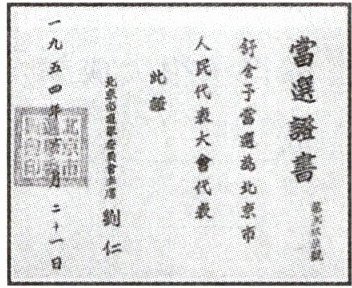 當選證書
舒舍予當選為北京市
人民代表大會代表
此證
北京市選舉委員會主席 劉仁
一九五四年 月二十一日